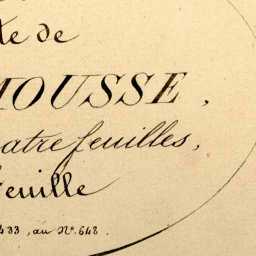 te de
MOUSSE,
quatre feuilles,
feuille
433, au Nº. 648.